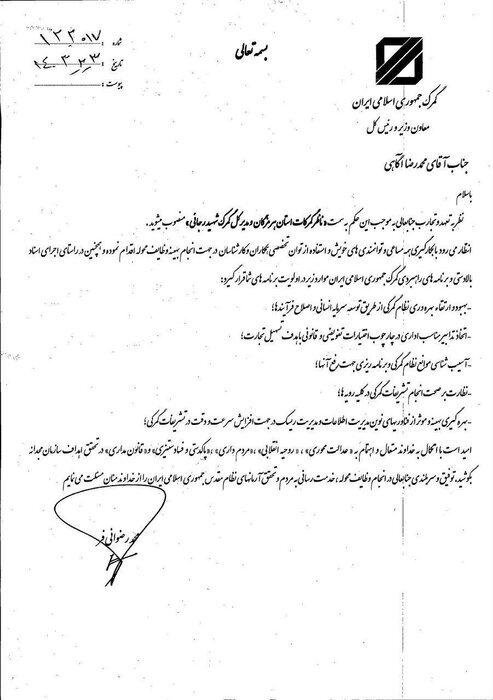 بسمه تعالی
شماره :
تاریخ :
پیوست :
گمرک جمهوری اسلامی ایران
معاون وزیر و رئیس کل
جناب آقای محمدرضا آگاهی
باسلام
نظر به تعهد و تجارب جنابعالی به موجب این حکم به سمت «ناظر گمرکات استان هرمزگان و مدیر کل گمرک شهید رجائی» منصوب میشوید.
انتظار می رود با بکارگیری همه مساعی و توانمندی های خویش و استفاده از توان تخصصی همکاران و کارشناسان در جهت انجام بهینه وظایف محوله اقدام نموده و همچنین در راستای اجرای اسناد
بالادستی و برنامه های راهبردی گمرک جمهوری اسلامی ایران موارد زیر در اولویت برنامه های شما قرار گیرد:
-بهبود و ارتقاء بهره وری نظام گمرکی از طریق توسعه سرمایه انسانی و اصلاح فرآیندها؛
-اتخاذ تدابیر مناسب اداری در چارچوب اختیارات تفویضی و قانونی با هدف تسهیل تجارت؛
-آسیب شناسی موانع نظام گمرکی و برنامه ریزی جهت رفع آنها؛
-نظارت بر صحت انجام تشریفات گمرکی در کلیه رویه ها؛
-بهره گیری بهینه و موثر از فناوریهای نوین مدیریت اطلاعات و مدیریت ریسک در جهت افزایش سرعت و دقت در تشریفات گمرکی؛
امید است با اتکال به خداوند متعال و اهتمام به «عدالت محوری» ، «روحیه انقلابی» ، «مردم داری» ، «پاکدستی و فساد ستیزی» و «قانون مداری» در تحقق اهداف سازمان مجدانه
بکوشید، توفیق و سربلندی جنابعالی در انجام وظایف محوله ، خدمت رسانی به مردم و تحقق آرمانهای نظام مقدس جمهوری اسلامی ایران را از خداوند منان مسئلت می نمایم
محمد رضوانی فر